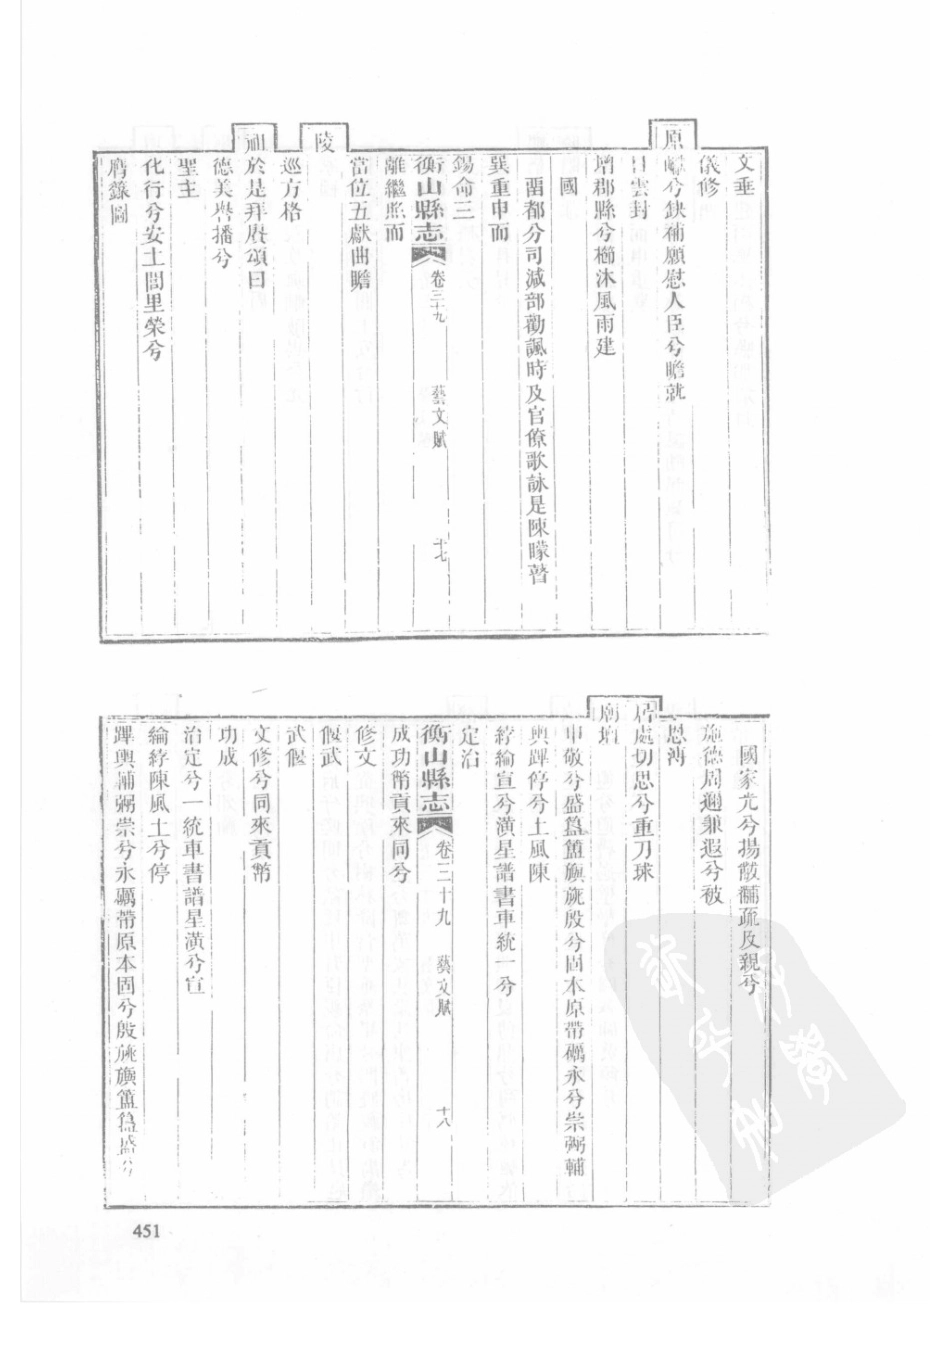 文垂
儀修
原㠑兮缺補願慰人臣兮瞻就
日雲封
增郡縣兮櫛沐風雨建
國
畱都分司減部勸諷時及官僚歌詠是陳矇瞽
巽重申而
錫命三
衡山縣志 卷三十九 藝文賦 十七
離繼照而
當位五獻曲瞻
陵
巡方格
祖於是拜賡頌曰
德美譽播兮
聖主
化行兮安土閭里榮兮
膺籙圖
國家光兮揚黻黼疏及親兮
施德周邇兼遐兮被
恩溥
居處切思兮重刀球
廟壇
申敬兮盛簋簠旟旐殷兮固本原帶礪永兮崇弼輔
輿蹕停兮土風陳
綍綸宣兮潢星譜書車統一兮
定治
衡山縣志 卷三十九 藝文賦 十八
成功幣貢來同兮
修文
偃武
武偃
文修兮同來貢幣
功成
治定兮一統車書譜星潢兮宣
綸綍陳風土兮停
蹕輿輔弼崇兮永礪帶原本固兮殷旐旟簠簋盛兮
451